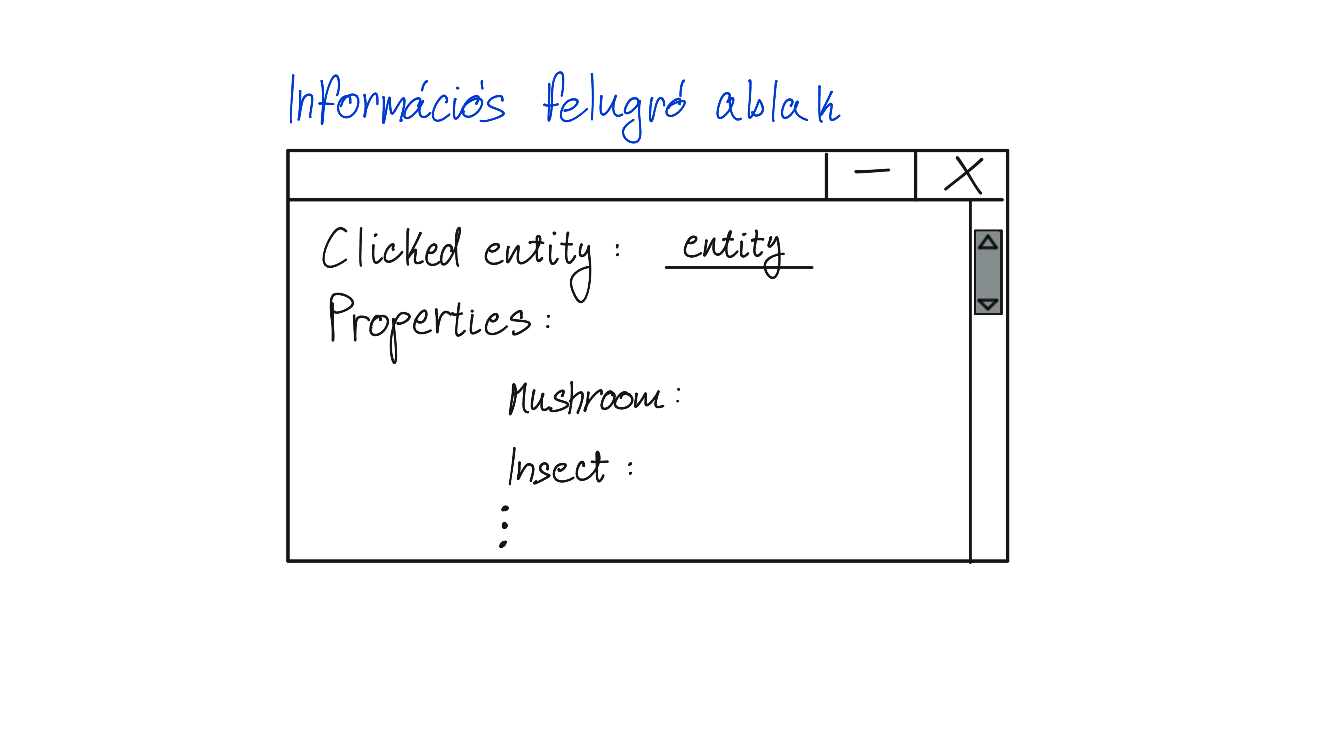 Információs felugró ablak
– X
Clicked entity : entity
Properties :
Mushroom :
Insect :
⋮